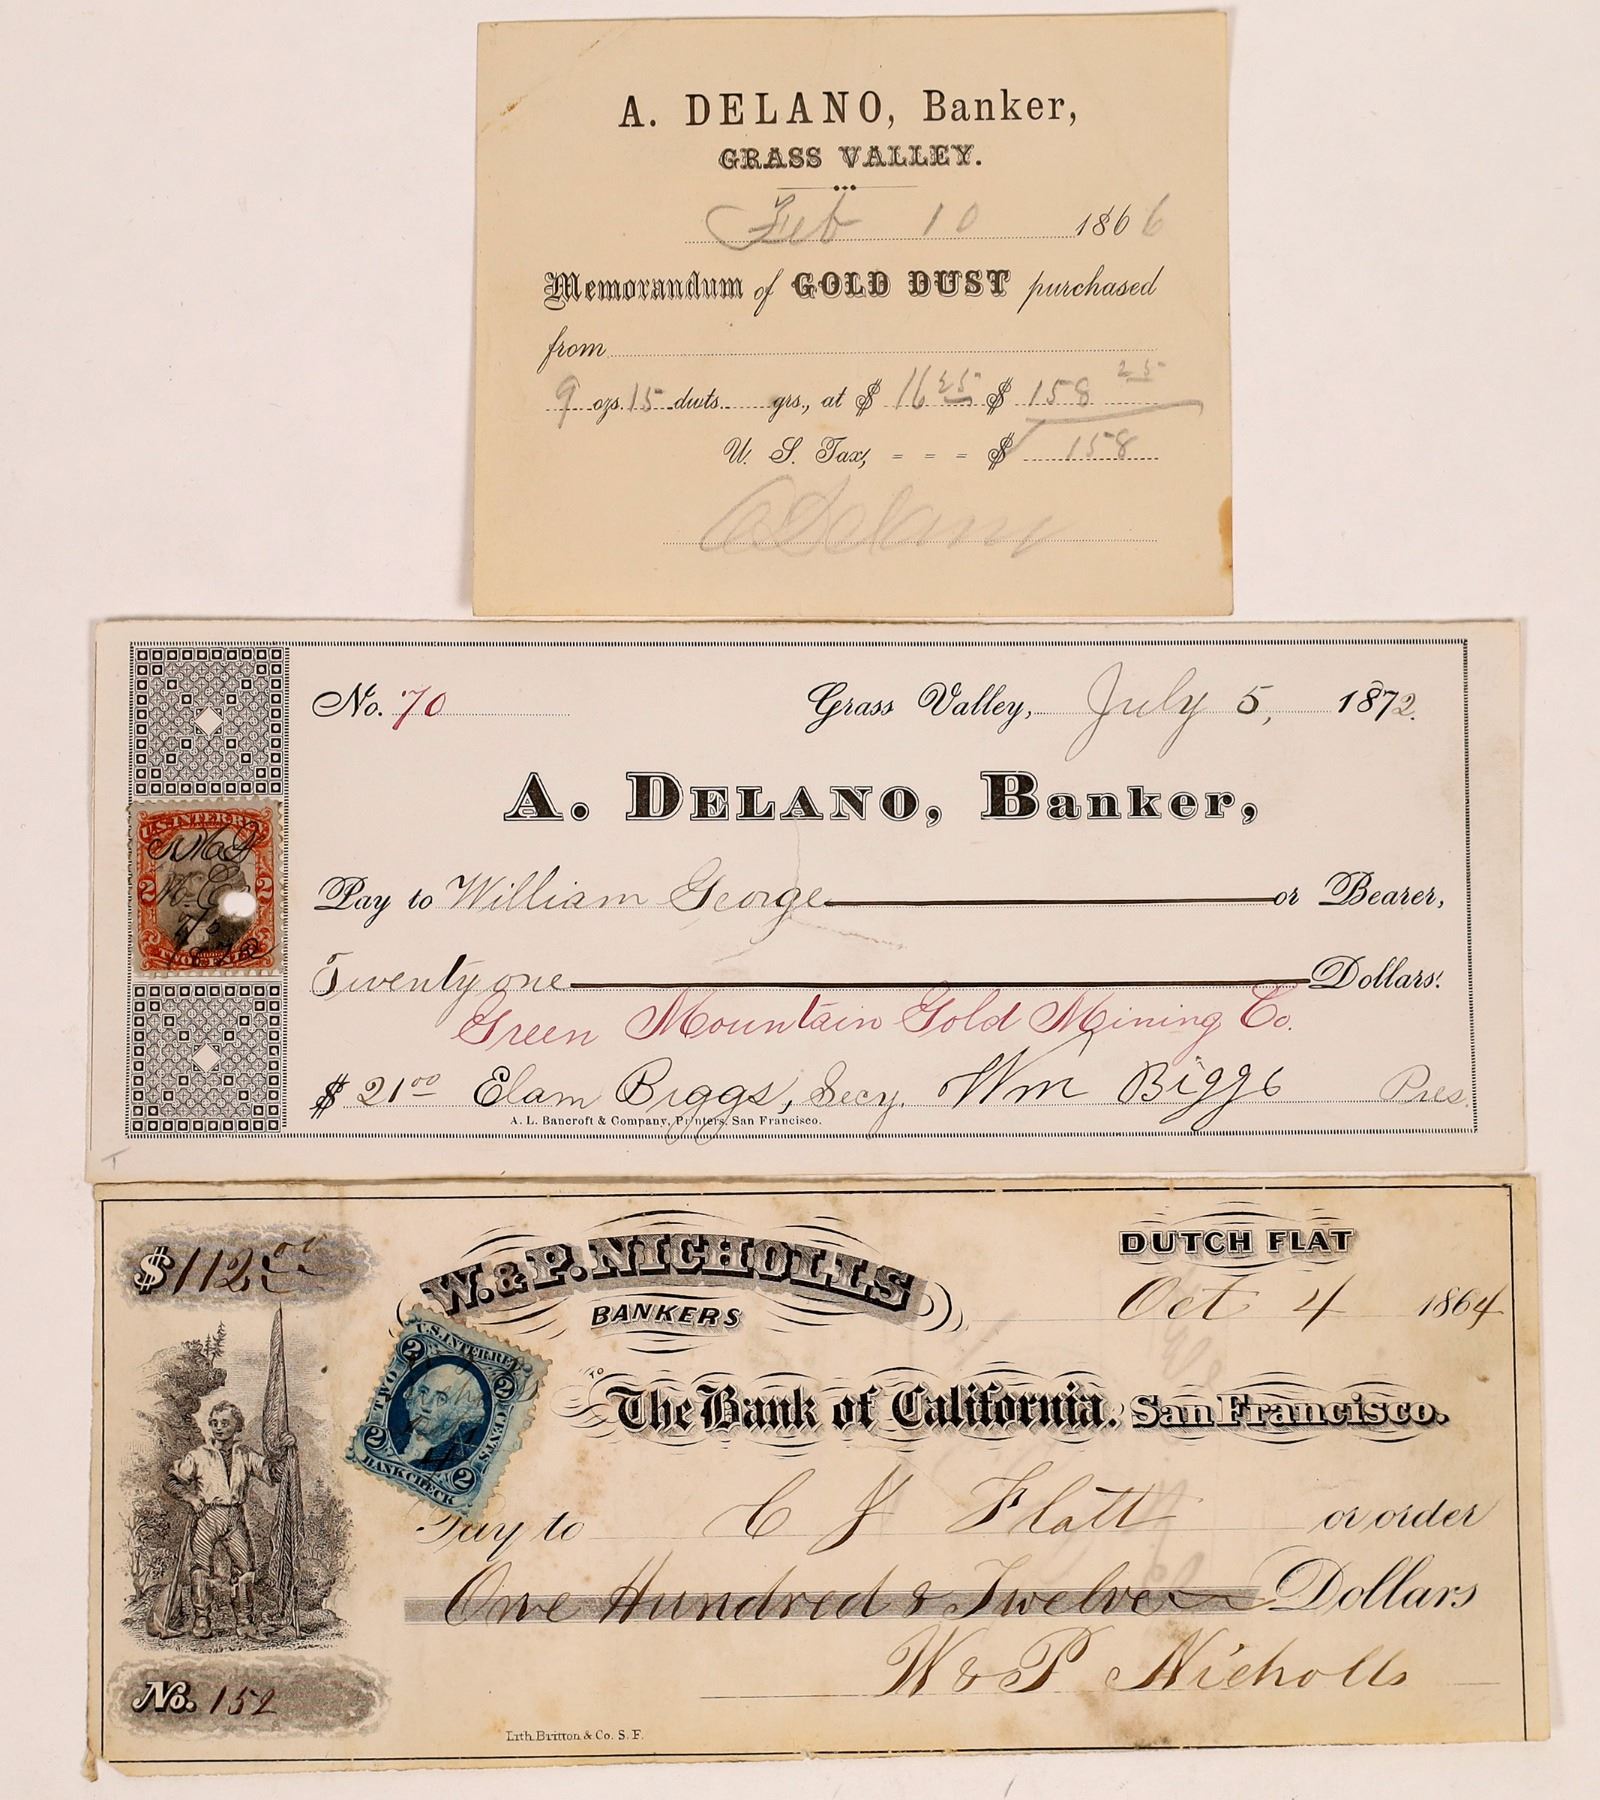 A. DELANO, Banker,
GRASS VALLEY.
Feb 10 1866
Memorandum of GOLD DUST purchased
from
9 ozs. 15 dwts. grs., at $ 16 25 $ 158 25
U. S. Tax, = = = $ 158
A Delano
No. 70 Grass Valley, July 5, 1872.
A. DELANO, Banker,
U.S. INTER. REV.
2 2
7/5
1872
Pay to William George or Bearer,
Twenty one Dollars.
Green Mountain Gold Mining Co.
$ 21 00 Elam Biggs, Secy. Wm Biggs Pres.
A. L. Bancroft & Company, Printers, San Francisco.
$112 00 W. & P. NICHOLLS DUTCH FLAT
BANKERS
Oct 4 1864
U.S. INTER. REV.
2 TWO CENTS 2
2 BANK CHECK 2
TO
The Bank of California. San Francisco.
Pay to C J Flatt or order
One Hundred & Twelve Dollars
W & P Nicholls
No. 152
Lith. Britton & Co. S. F.